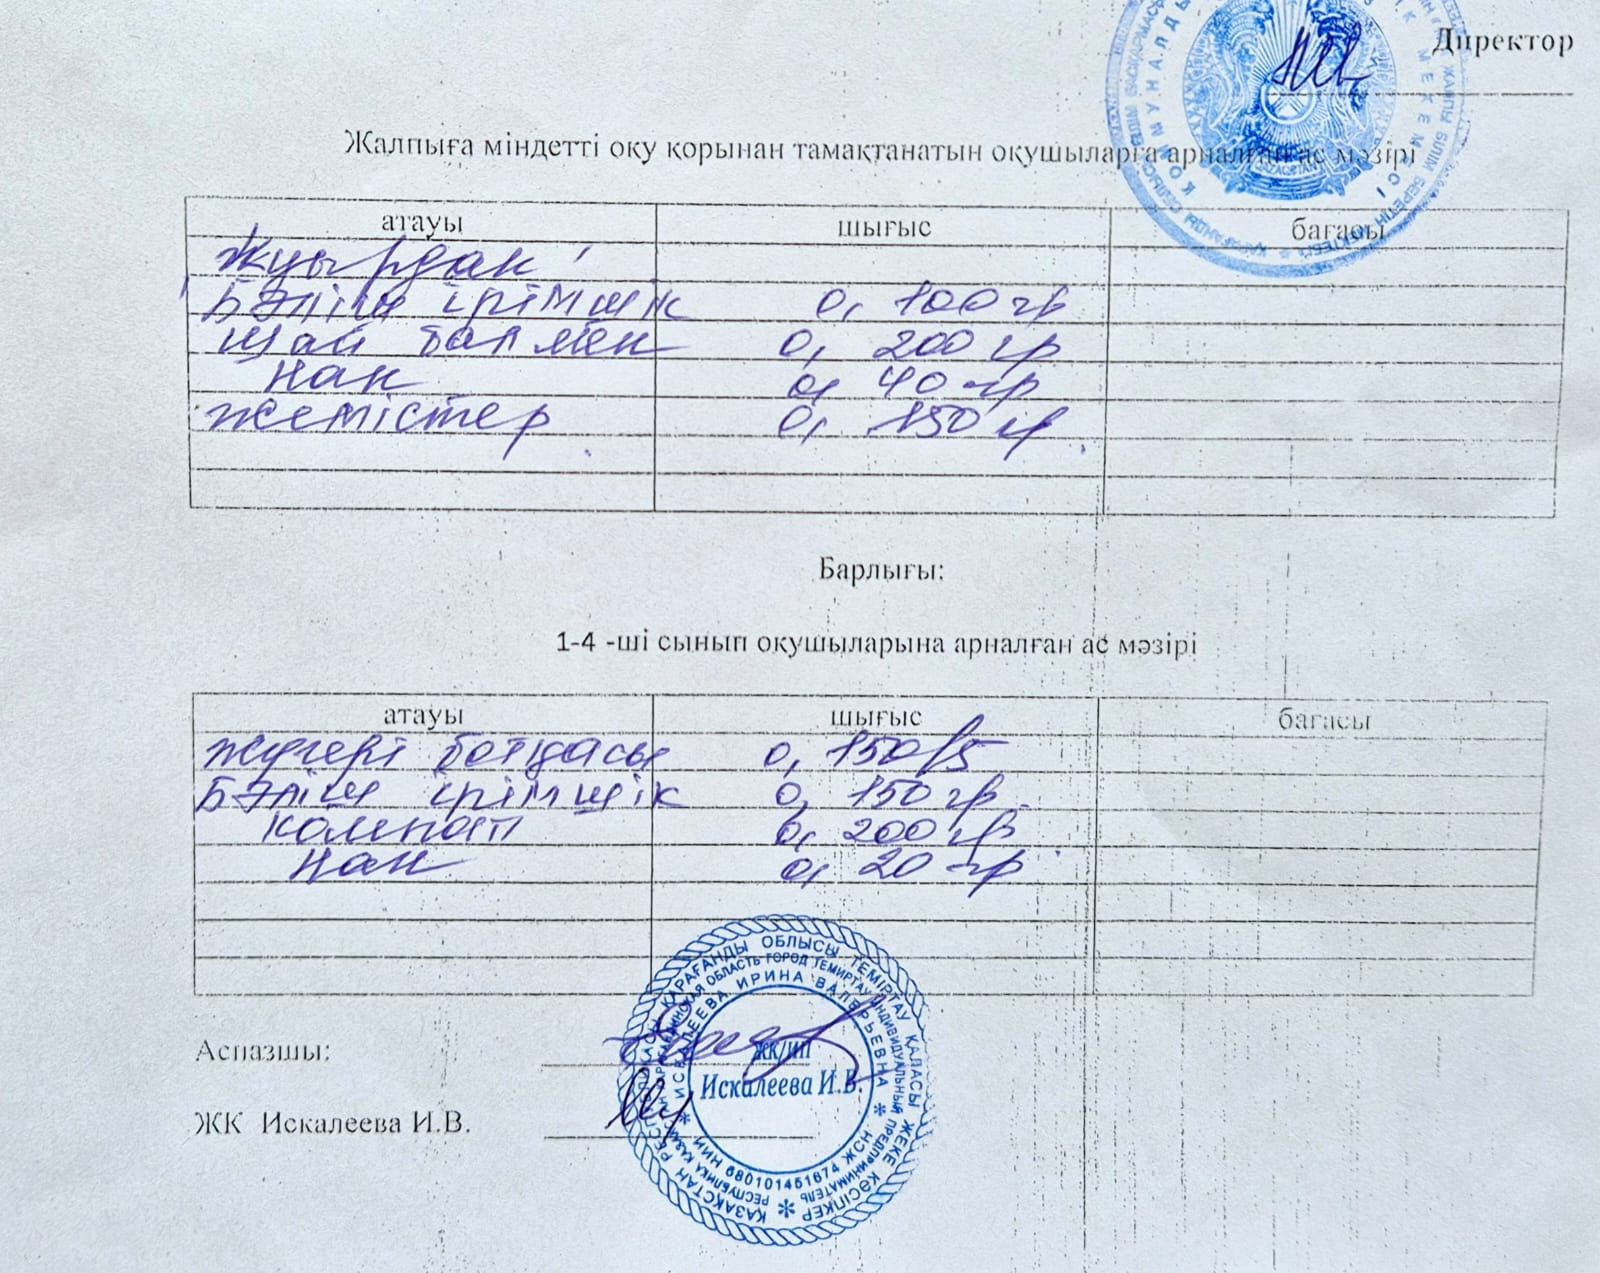 Директор
Жалпыға міндетті оқу қорынан тамақтанатын оқушыларға арналған ас мәзірі
атауы шығыс бағасы
Жуырдак
Бәліш ірімшік 0, 100 гр
Шай балмен 0, 200 гр
Нан 0, 40 гр
Жемістер 0, 150 гр
Барлығы:
1-4 -ші сынып оқушыларына арналған ас мәзірі
атауы шығыс бағасы
Жүгері ботқасы 0, 150/5
Бәліш ірімшік 0, 150 гр
Компот 0, 200 гр
Нан 0, 20 гр
Аспазшы:
ЖК Искалеева И.В.
ҚАЗАҚСТАН РЕСПУБЛИКАСЫ ҚАРАҒАНДЫ ОБЛЫСЫ ТЕМІРТАУ ҚАЛАСЫ ЖЕКЕ КӘСІПКЕР
РЕСПУБЛИКА КАЗАХСТАН КАРАГАНДИНСКАЯ ОБЛАСТЬ ГОРОД ТЕМИРТАУ ИНДИВИДУАЛЬНЫЙ ПРЕДПРИНИМАТЕЛЬ
ИСКАЛЕЕВА ИРИНА ВАЛЕРЬЕВНА
ИИН 680101451674 ЖСН
ЖК/ИП
Искалеева И.В.